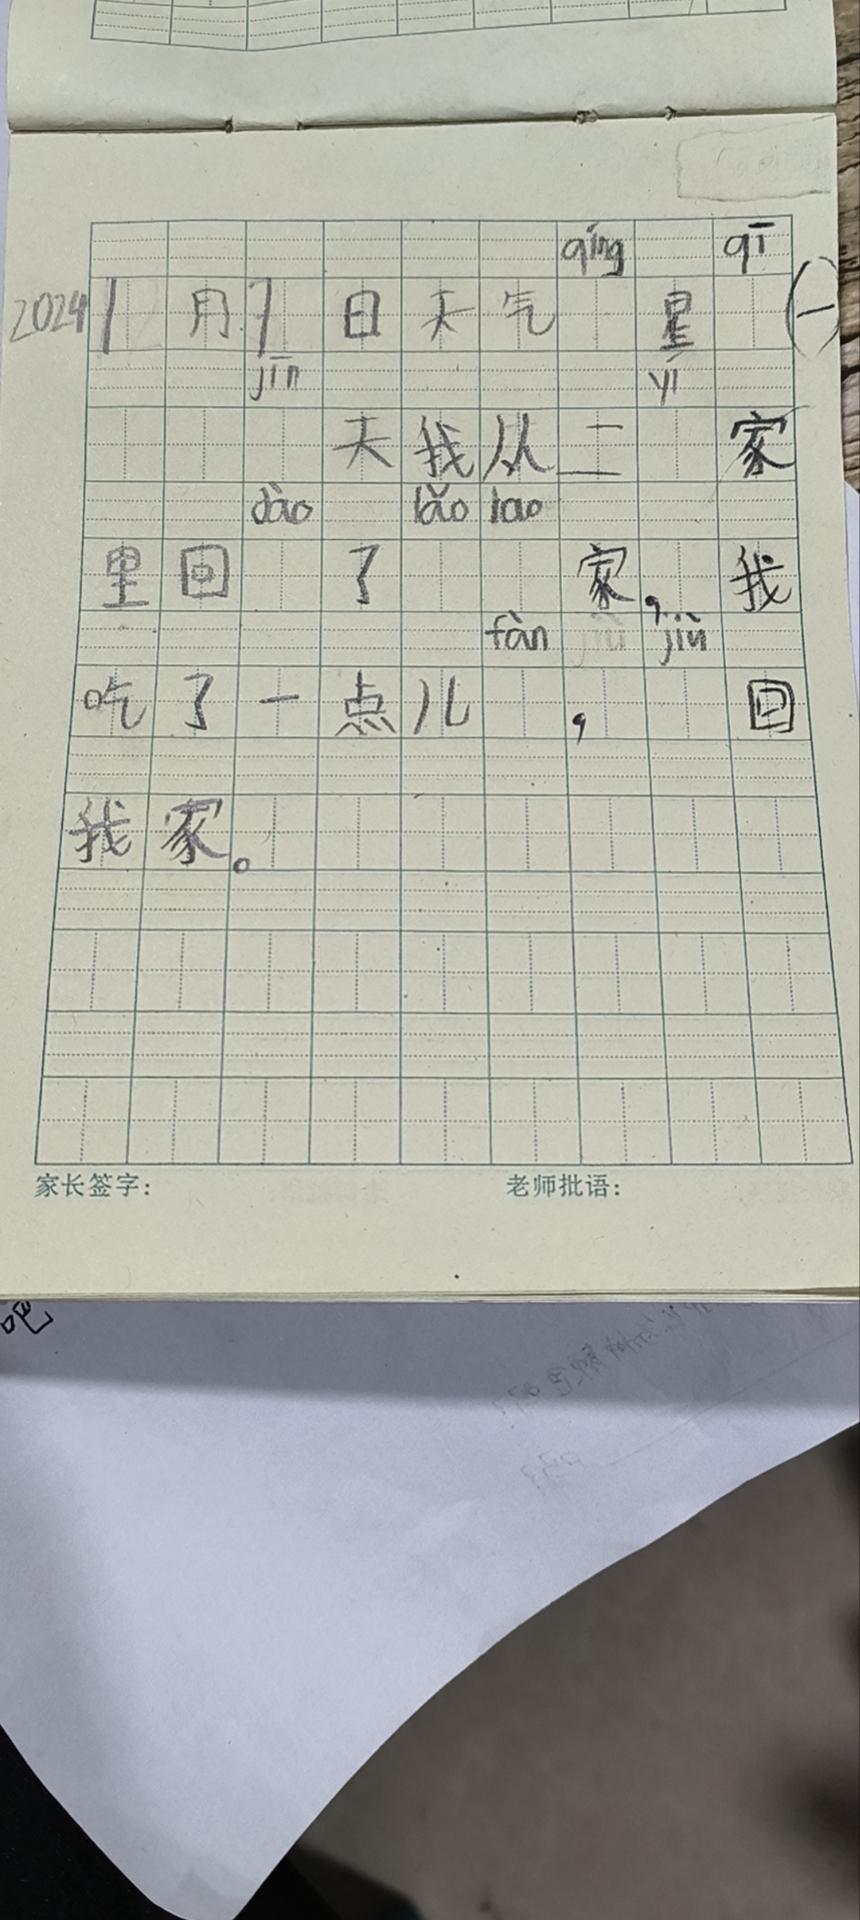 qíng qī
2024 1月7日天气 星 (一
jīn yí
天我从二 家
dào lǎo lao
里回 了 家,我
fàn jiù
吃了一点儿 , 回
我家。
家长签字: 老师批语:
吧